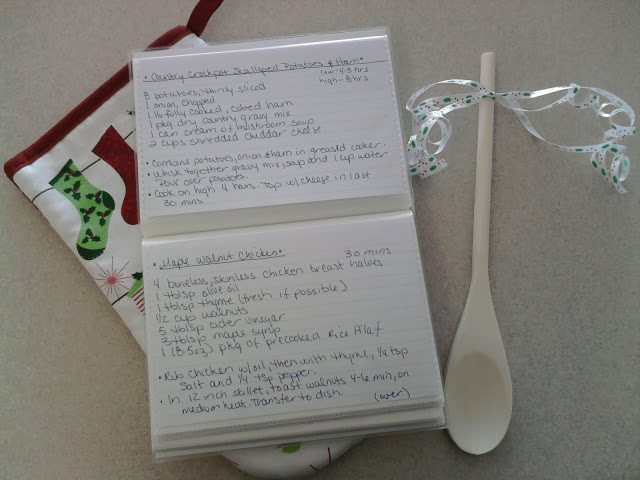 • Country Crockpot Scalloped Potatoes & Ham•
low-4.5 hrs
high-8hrs
8 potatoes, thinly sliced
1 onion, chopped
1 lb fully cooked, cubed ham
1 pkg dry country gravy mix
1 can cream of mushroom soup
2 cups shredded cheddar cheese
• Combine potatoes, onion & ham in greased cooker.
• Whisk together gravy mix, soup and 1 cup water
Pour over potatoes.
• Cook on high 4 hours. Top w/cheese in last
30 mins.
• Maple Walnut Chicken•
30 mins
4 boneless, skinless chicken breast halves
1 tblsp olive oil
1 tblsp thyme (fresh if possible)
1/2 cup walnuts
5 tblsp cider vinegar
3 tblsp maple syrup
1 (8.5oz) pkg of precooked Rice Pilaf
• Rub chicken w/oil, then with thyme, 1/4 tsp
salt and 1/4 tsp pepper.
• In 12 inch skillet, toast walnuts 4-6 min, on
medium heat. Transfer to dish.
(over)